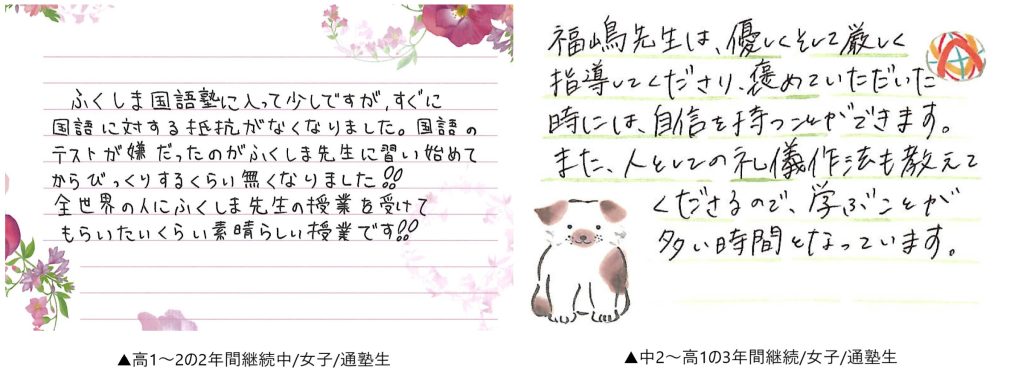 ふくしま国語塾に入って少しですが、すぐに
国語に対する抵抗がなくなりました。国語の
テストが嫌だったのがふくしま先生に習い始めて
からびっくりするくらい無くなりました!!
全世界の人にふくしま先生の授業を受けて
もらいたいくらい素晴らしい授業です!!
▲高1～2の2年間継続中/女子/通塾生
福嶋先生は、優しくそして厳しく
指導してくださり、褒めていただいた
時には、自信を持つことができます。
また、人としての礼儀作法も教えて
くださるので、学ぶことが
多い時間となっています。
▲中2～高1の3年間継続/女子/通塾生